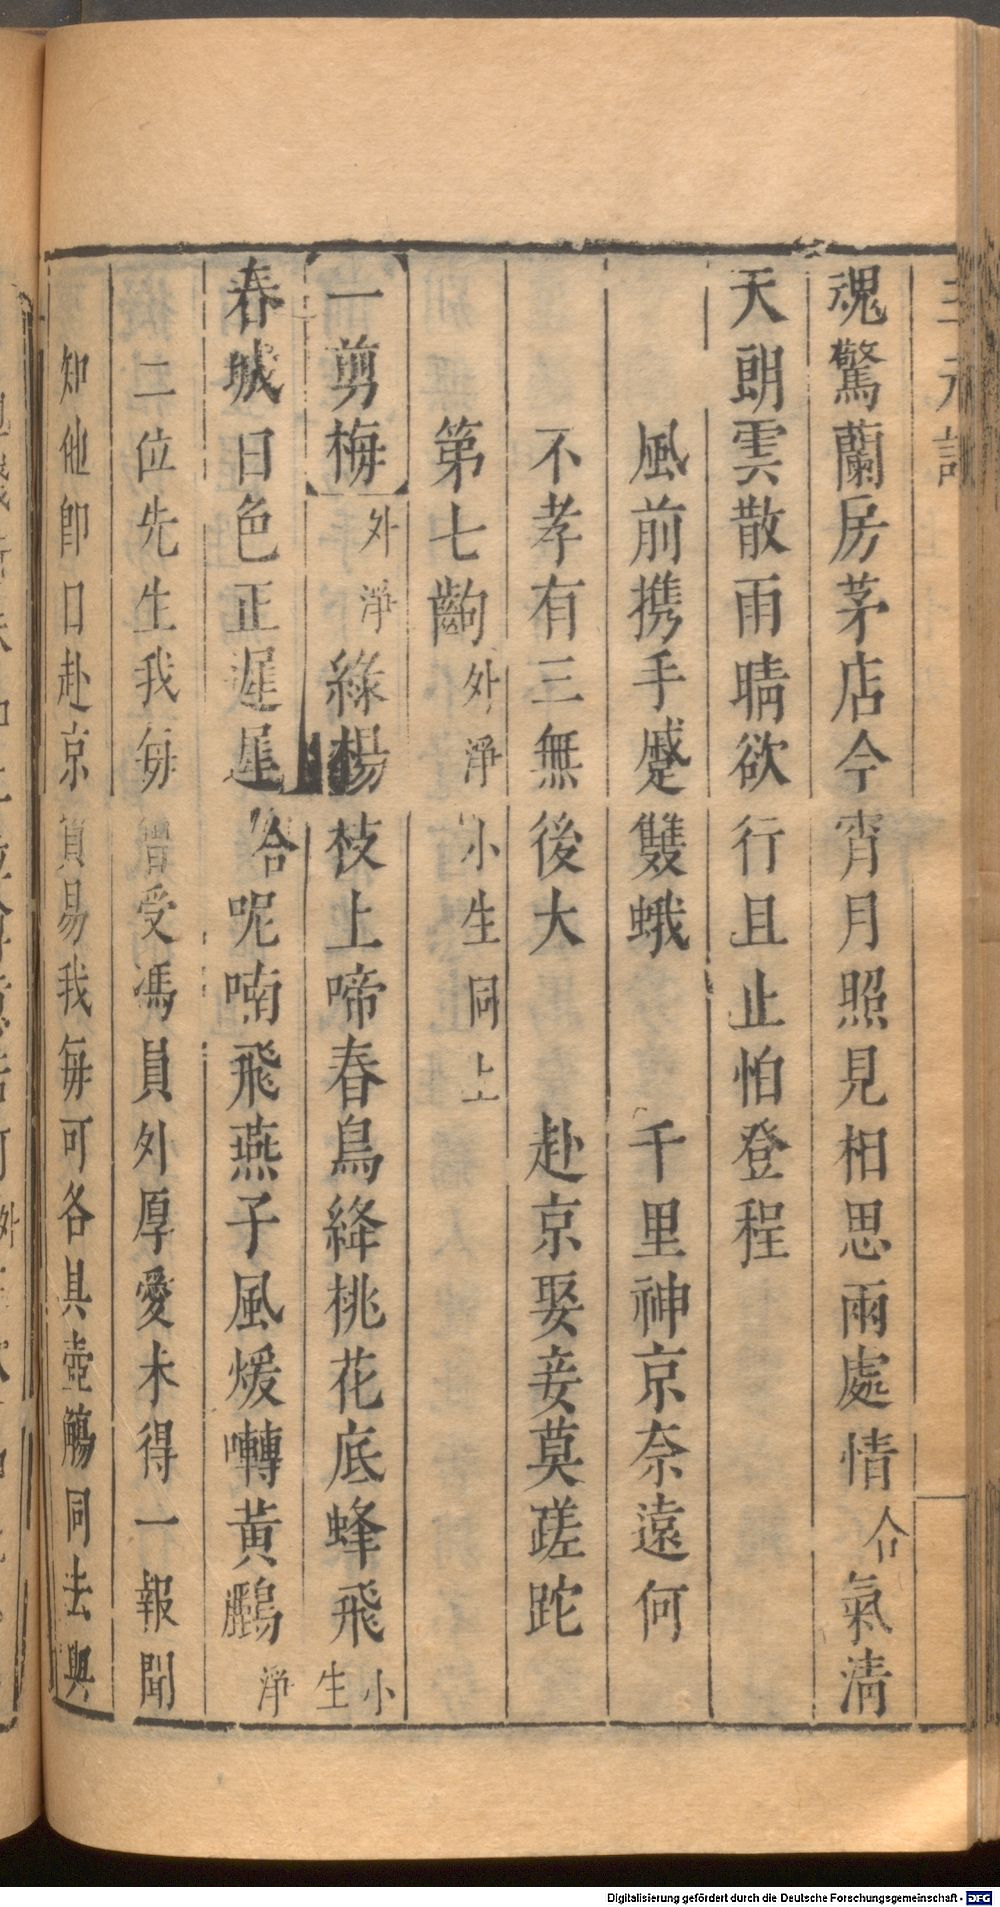 三元記
魂驚蘭房茅店今宵月照見相思兩處情合氣清
天朗雲散雨晴欲行且止怕登程
風前携手蹙雙蛾　千里神京奈遠何
不孝有三無後大　赴京娶妾莫蹉跎
第七齣外淨小生同上
一剪梅外淨綠楊枝上啼春鳥絳桃花底蜂飛小生
春城日色正遲遲合呢喃飛燕子風煖囀黃鸝淨
二位先生我每曾受馮員外厚愛未得一報聞
知他即日赴京買易我每可各具壺觴同去與
Digitalisierung gefördert durch die Deutsche Forschungsgemeinschaft - DFG